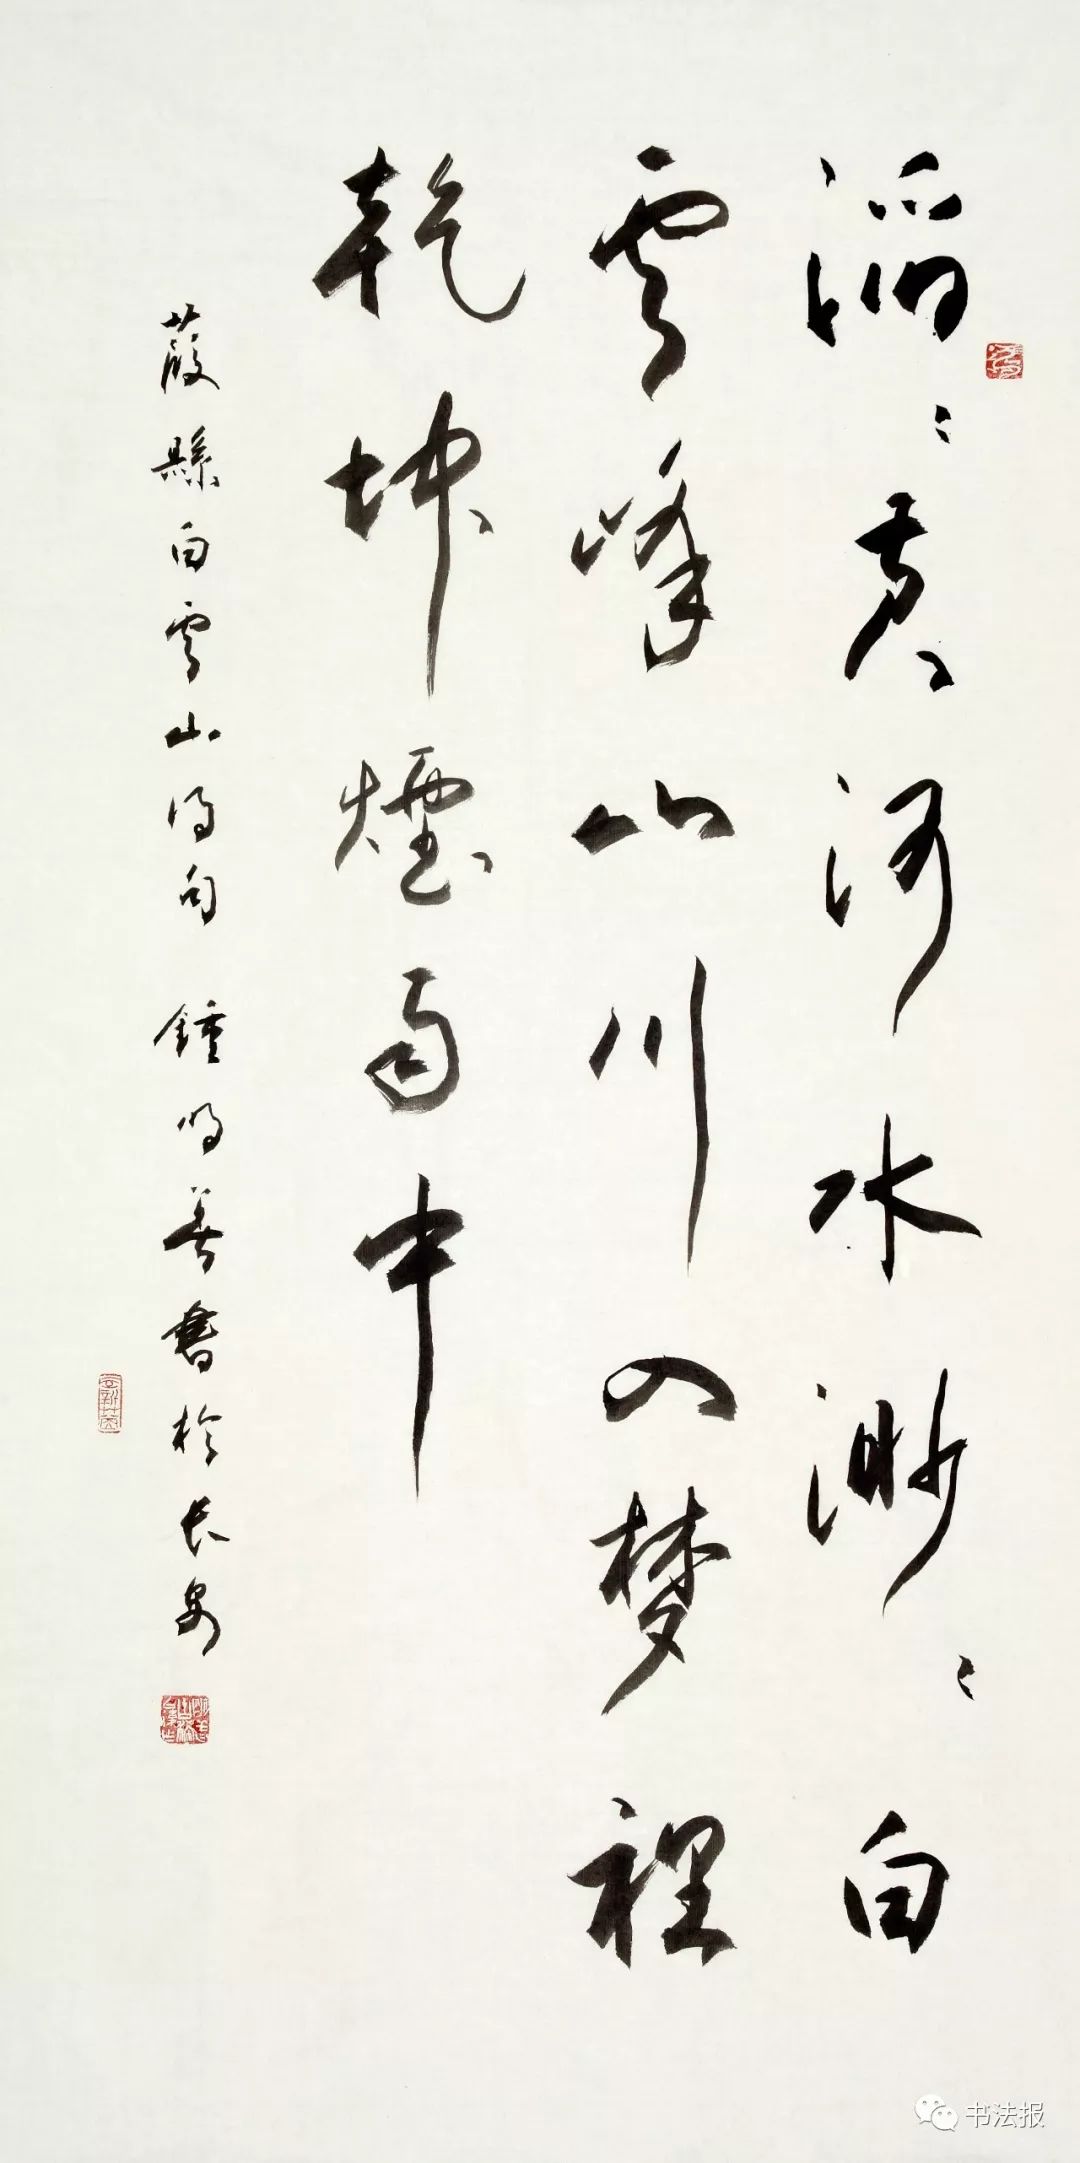 滔〻黄河水渺〻白
雲峰山川入梦裡
乾坤煙雨中
葭縣白雲山得句 鍾明善書於長安
书法报